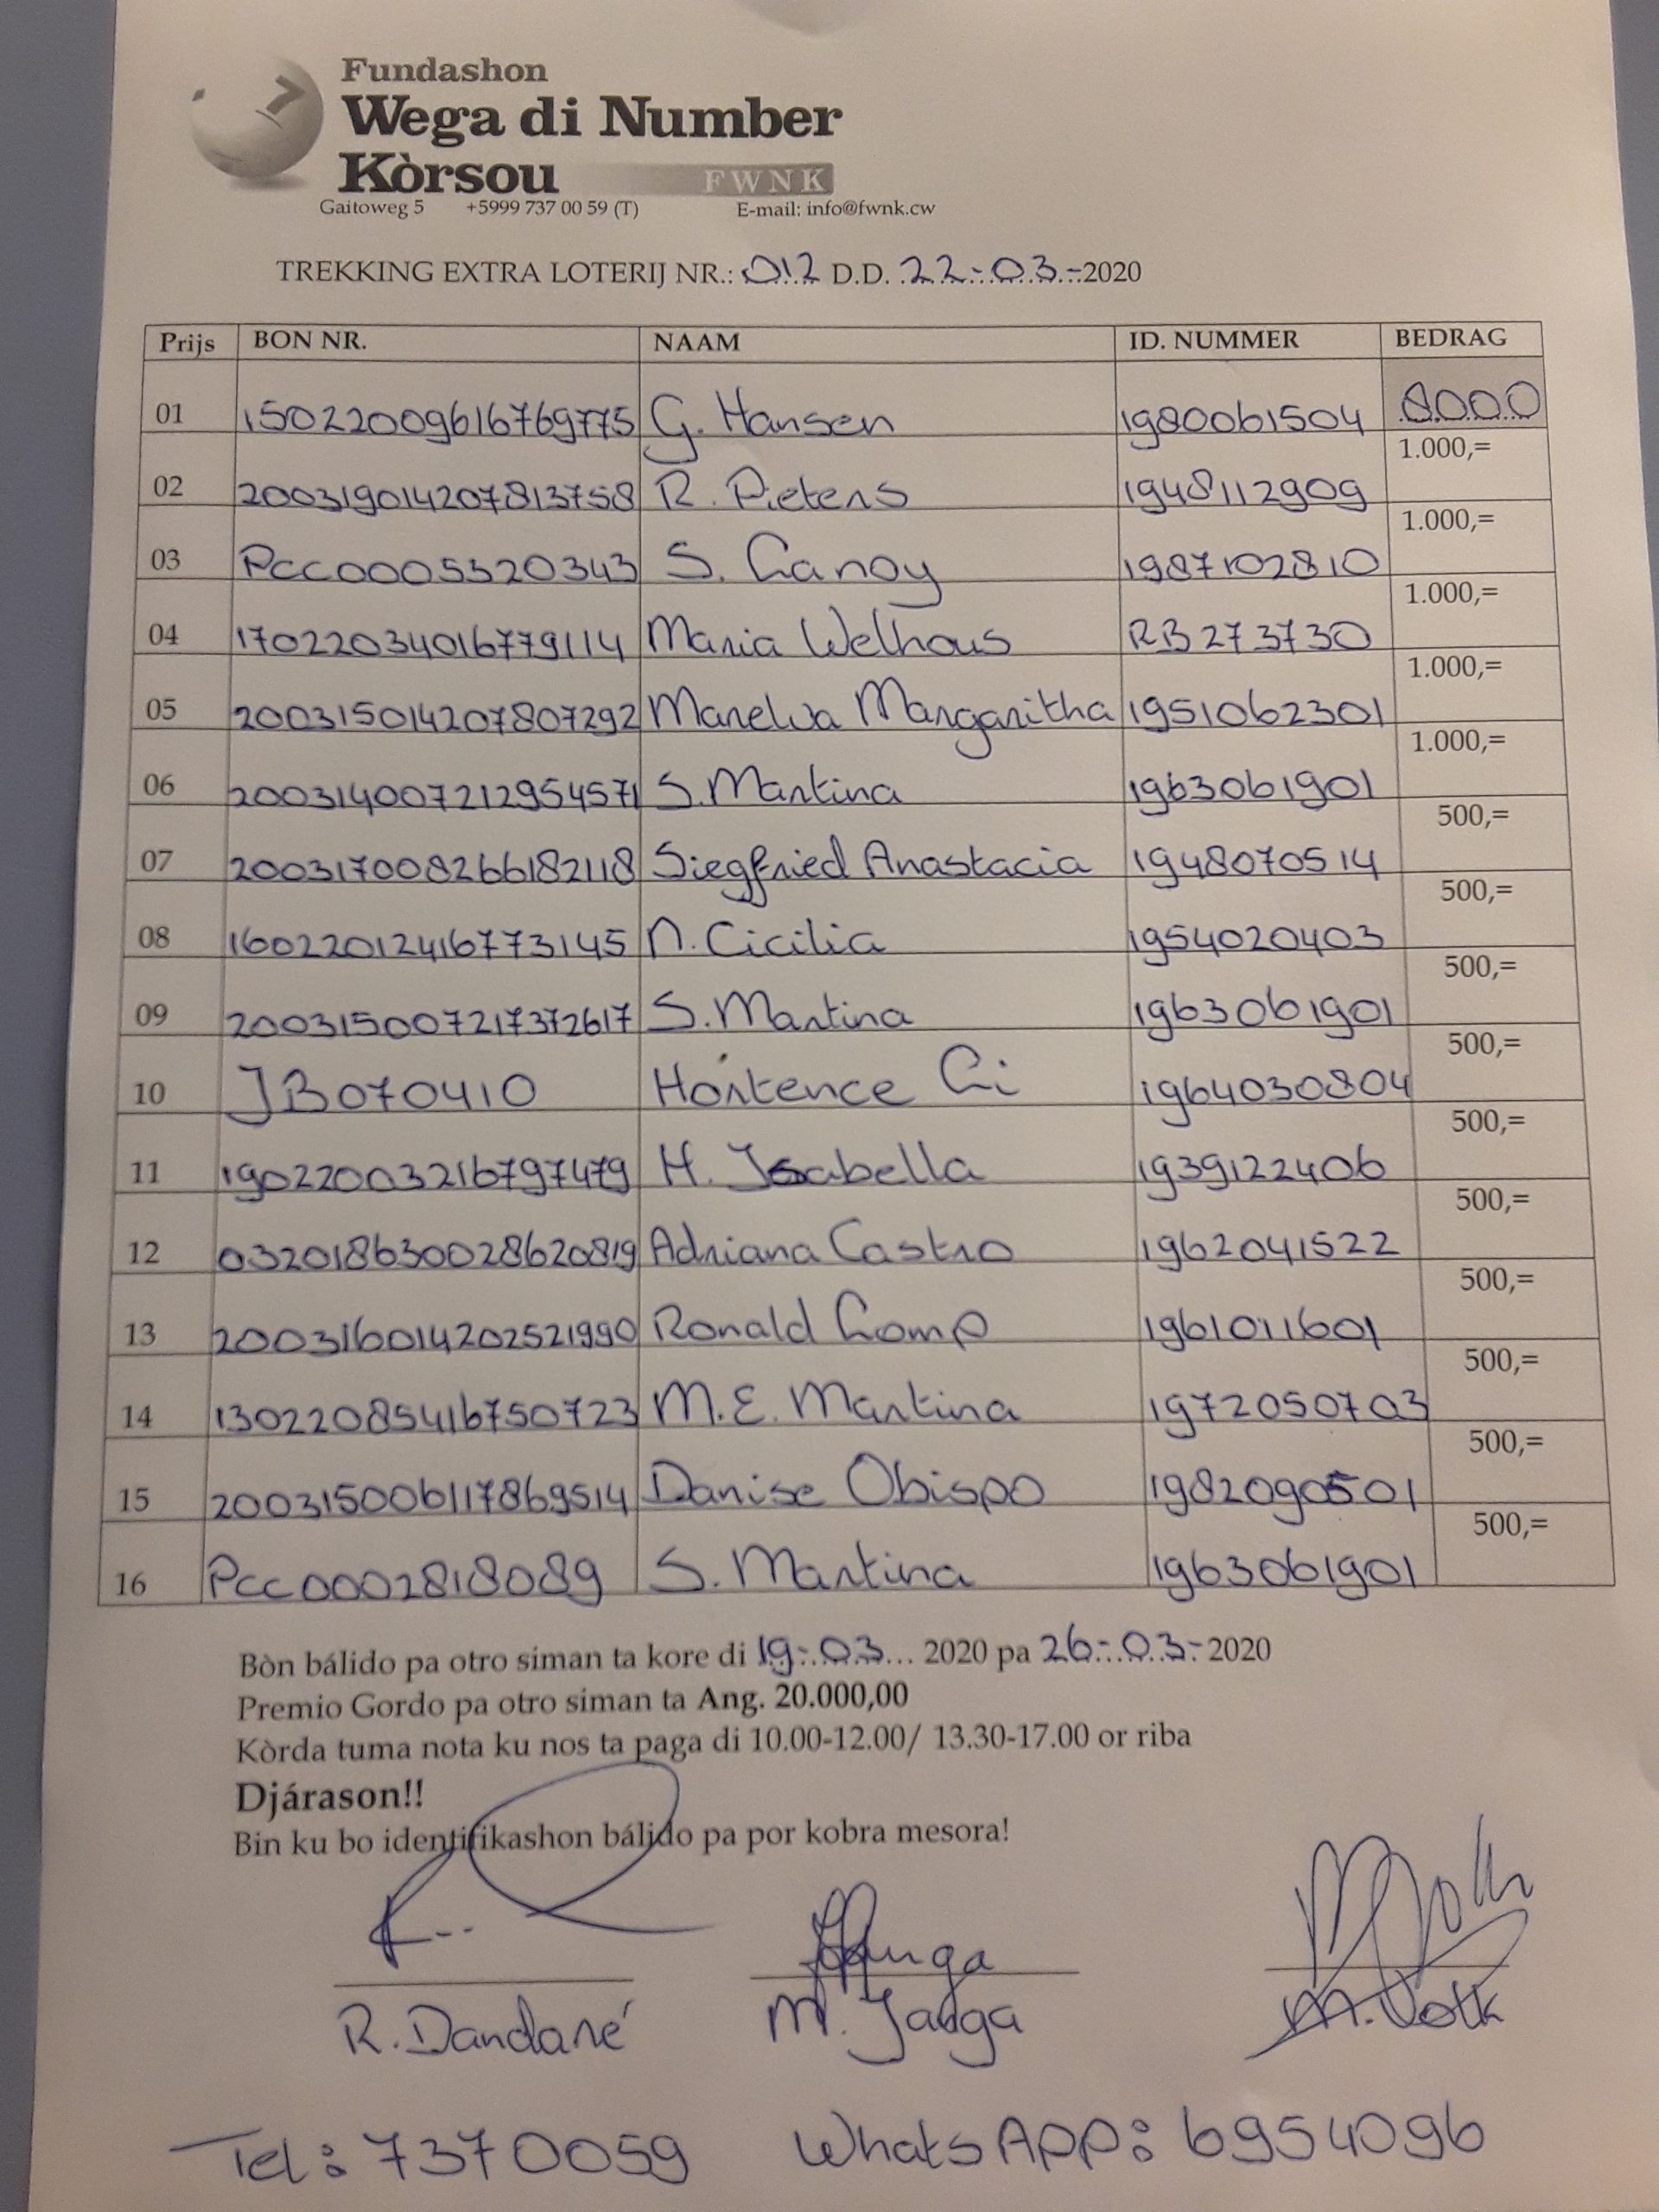 Fundashon
Wega di Number
Kòrsou FWNK
Gaitoweg 5 +5999 737 00 59 (T) E-mail: info@fwnk.cw
TREKKING EXTRA LOTERIJ NR.: 012 D.D. 22-03-2020
Prijs BON NR. NAAM ID. NUMMER BEDRAG
01 15022009616769775 G. Hansen 1980061504 8000
02 200319014207813758 R. Pieters 1948112909 1.000,=
03 PCC0005320343 S. Canoy 1987102810 1.000,=
04 17022034016779114 Maria Welhous RB273730 1.000,=
05 200315014207807292 Marelva Margaritha 1951062301 1.000,=
06 2003140072129 54571 S. Martina 1963061901 1.000,=
07 2003170082661 82118 Siegfried Anastacia 1948070514 500,=
08 16022012416773145 N. Cicilia 1954020403 500,=
09 2003150072173 72617 S. Martina 1963061901 500,=
10 JB070410 Hortence Ci 1964030804 500,=
11 19022003216797479 H. Isabella 1939122406 500,=
12 032018630028620819 Adriana Castro 1962041522 500,=
13 2003160142025 21990 Ronald Comp 1961011601 500,=
14 13022085416750723 M.E. Martina 1972050703 500,=
15 200315006117869514 Danise Obispo 1982090501 500,=
16 PCC0002818089 S. Martina 1963061901 500,=
Bòn bálido pa otro siman ta kore di 19-03... 2020 pa 26-03-2020
Premio Gordo pa otro siman ta Ang. 20.000,00
Kòrda tuma nota ku nos ta paga di 10.00-12.00/ 13.30-17.00 or riba
Djárason!!
Bin ku bo identifikashon bálido pa por kobra mesora!
R. Dandaré M. Jauga M. Volk
Tel: 7370059 WhatsAPP: 6954096